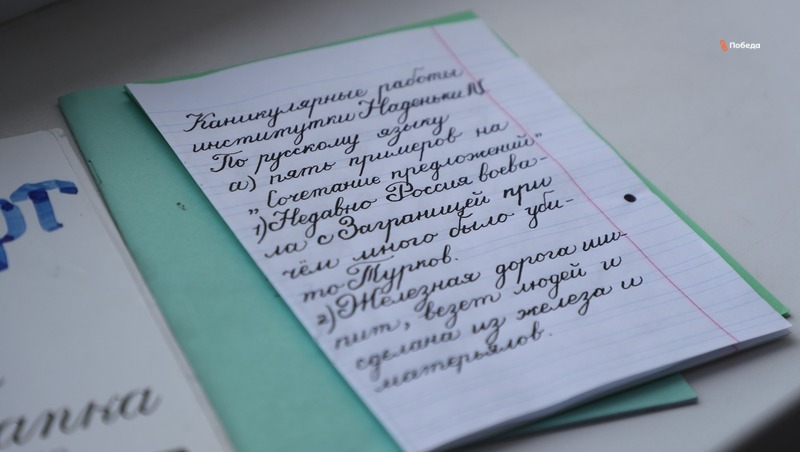 Победа
Каникулярные работы
институтки Наденьки N.
По русскому языку
а) пять примеров на
„Сочетание предложений"
1) Недавно Россия воева-
ла с Заграницей при
чём много было уби-
то Турков.
2) Железная дорога ши-
пит, везет людей и
сделана из железа и
матерьялов.
апка